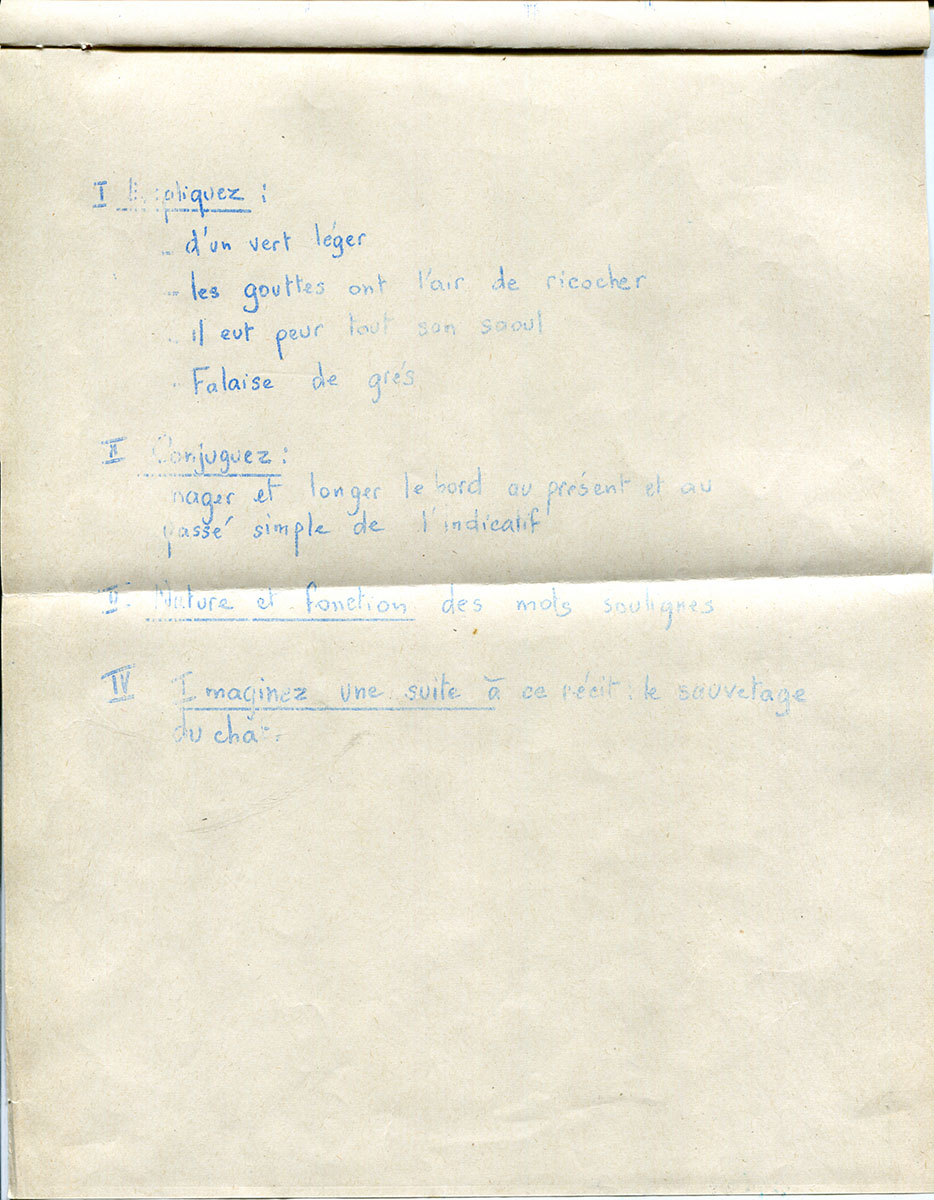 I Expliquez :
- d'un vert léger
- les gouttes ont l'air de ricocher
- il eut peur tout son saoul
- Falaise de grés
II Conjuguez :
nager et longer le bord au présent et au
passé simple de l'indicatif
II. Nature et fonction des mots soulignes
IV Imaginez une suite à ce récit : le sauvetage
du chat.